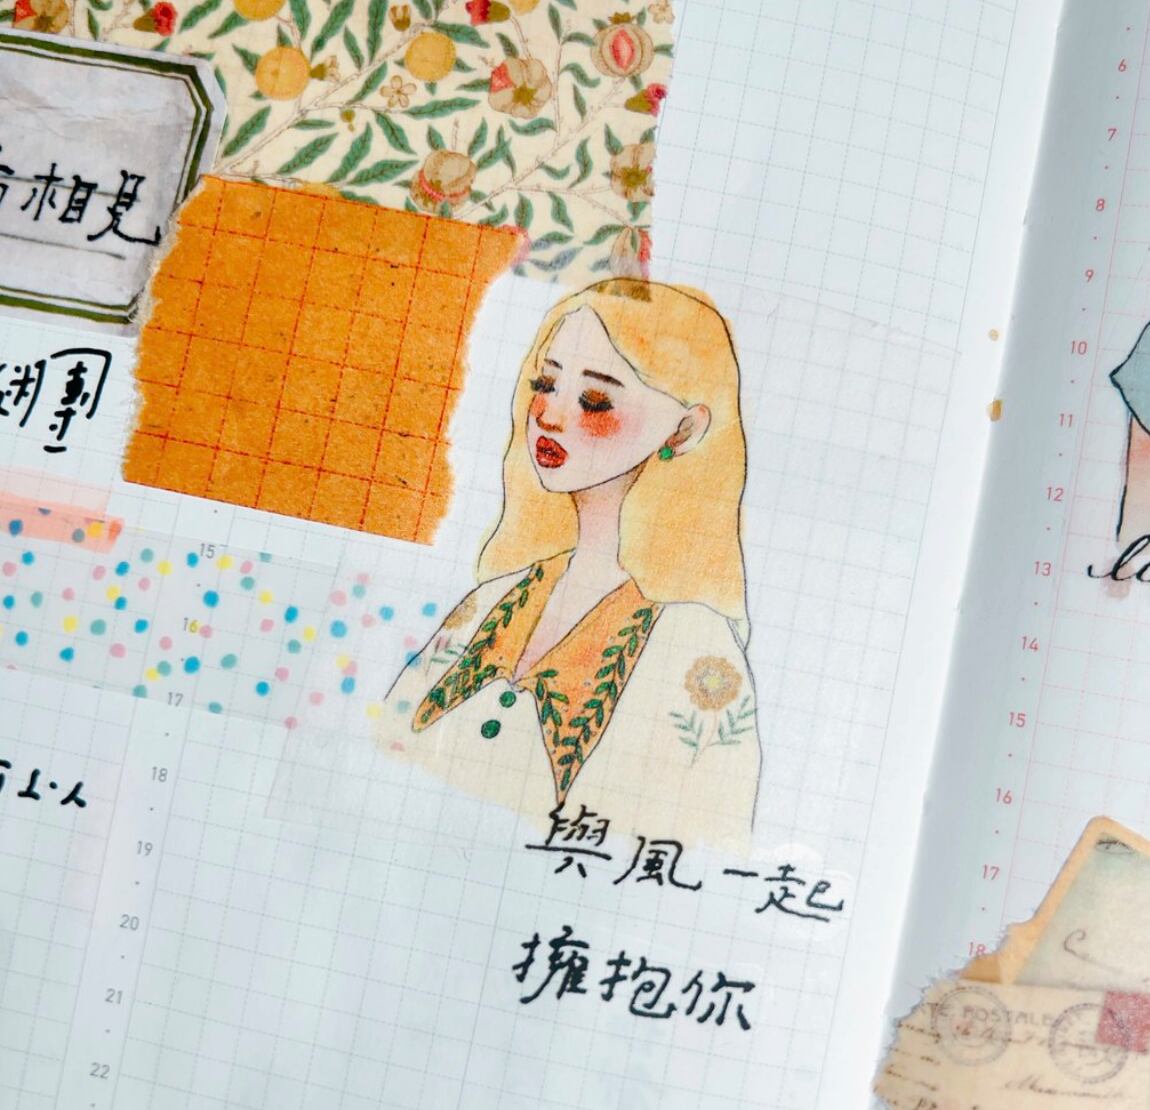 相見
團
與風一起
擁抱你
15
16
17
18
19
20
21
22
6
7
8
9
10
11
12
13
14
15
16
17
18
POSTALE